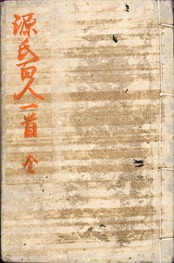 源氏百人一首 全